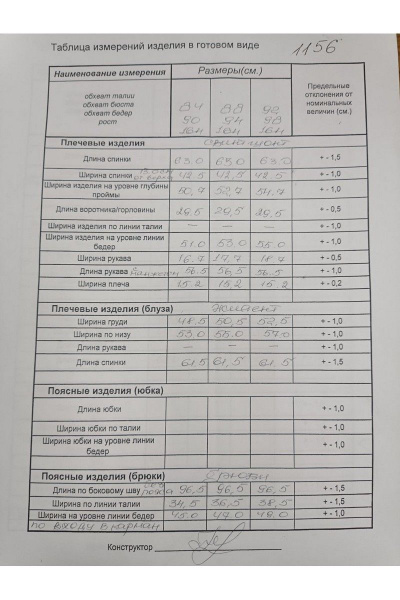 Таблица измерений изделия в готовом виде 1156
Наименование измерения Размеры(см.) Предельные отклонения от номинальных величин (см.)
обхват талии 84 88 92
обхват бюста 90 94 98
обхват бедер
рост 164 164 164
Плечевые изделия
Длина спинки 63.0 63.0 63.0 + - 1,5
Ширина спинки 42.5 42,5 42.5 + - 1,0
Ширина изделия на уровне глубины проймы 50,7 52,7 54.7 + - 1,0
Длина воротника/горловины 29.5 29,5 29,5 + - 0,5
Ширина изделия по линии талии — — — + - 1,0
Ширина изделия на уровне линии бедер 51.0 53.0 55.0 + - 1,0
Ширина рукава 16.7 17,7 18.7 + - 0,5
Длина рукава с манжетом 56.5 56,5 56.5 + - 1,0
Ширина плеча 15.2 15,2 15,2 + - 0,2
Плечевые изделия (блуза) жилет
Ширина груди 48,5 50,5 52,5 + - 1,0
Ширина по низу 53.0 55.0 57.0 + - 1,0
Длина рукава — — — + - 1,0
Длина спинки 61.5 61,5 61.5 + - 1,5
Поясные изделия (юбка)
Длина юбки + - 1,0
Ширина юбки по талии + - 1,0
Ширина юбки на уровне линии бедер + - 1,0
Поясные изделия (брюки) брюки
Длина по боковому шву без пояса 96,5 96,5 96,5 + - 1,5
Ширина по линии талии 34,5 36,5 38,5 + - 1,0
Ширина на уровне линии бедер 45.0 47.0 49.0 + - 1,0
по входу в карман
Конструктор